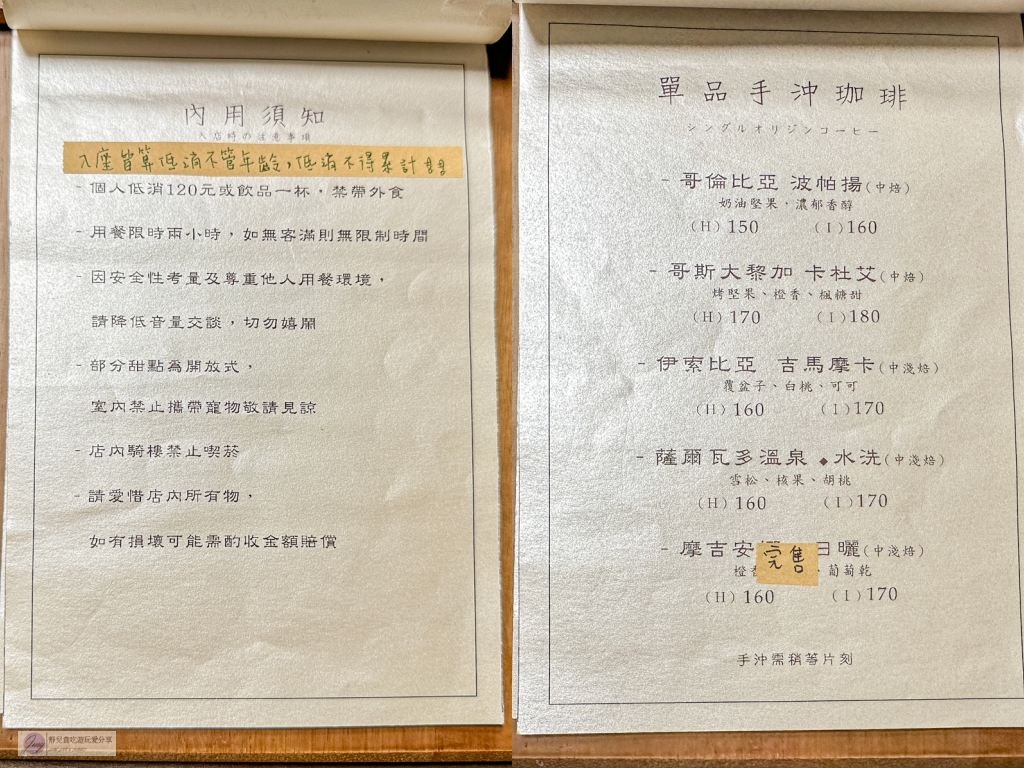 內用須知
入店時の注意事項
入座皆算低消不管年齡，低消不得累計!!
- 個人低消120元或飲品一杯，禁帶外食
- 用餐限時兩小時，如無客滿則無限制時間
- 因安全性考量及尊重他人用餐環境，
請降低音量交談，切勿嬉鬧
- 部分甜點為開放式，
室內禁止攜帶寵物敬請見諒
- 店內騎樓禁止喫菸
- 請愛惜店內所有物，
如有損壞可能需酌收金額賠償
靜兒貪吃遊玩愛分享
單品手沖珈琲
シングルオリジンコーヒー
- 哥倫比亞 波帕揚(中焙)
奶油堅果，濃郁香醇
(H) 150 (I) 160
- 哥斯大黎加 卡杜艾(中焙)
烤堅果、橙香、楓糖甜
(H) 170 (I) 180
- 伊索比亞 吉馬摩卡(中淺焙)
覆盆子、白桃、可可
(H) 160 (I) 170
- 薩爾瓦多溫泉 ◆水洗(中淺焙)
雪松、核果、胡桃
(H) 160 (I) 170
- 摩吉安 日曬(中淺焙)
完售
橙香 、葡萄乾
(H) 160 (I) 170
手沖需稍等片刻